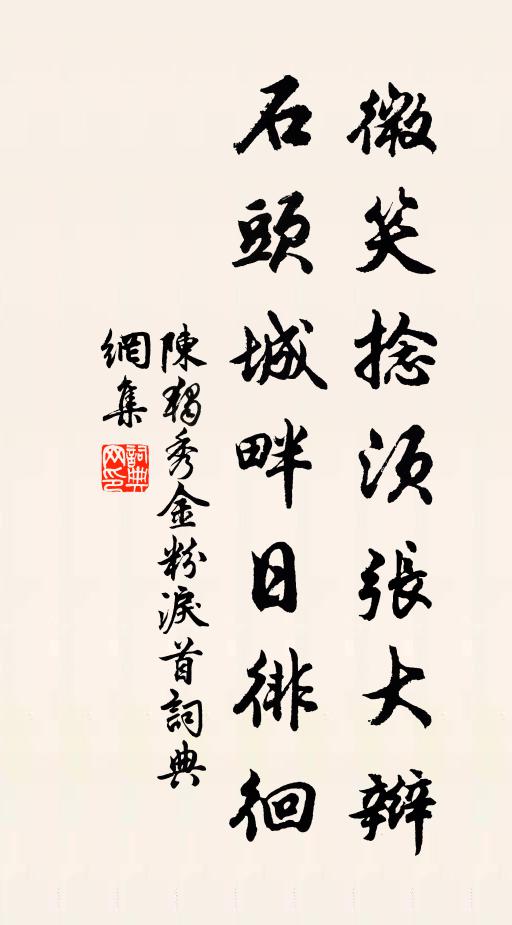 微笑捻須張大辮
石頭城畔日徘徊
陳獨秀金粉淚首詞典
網集
詞典網印